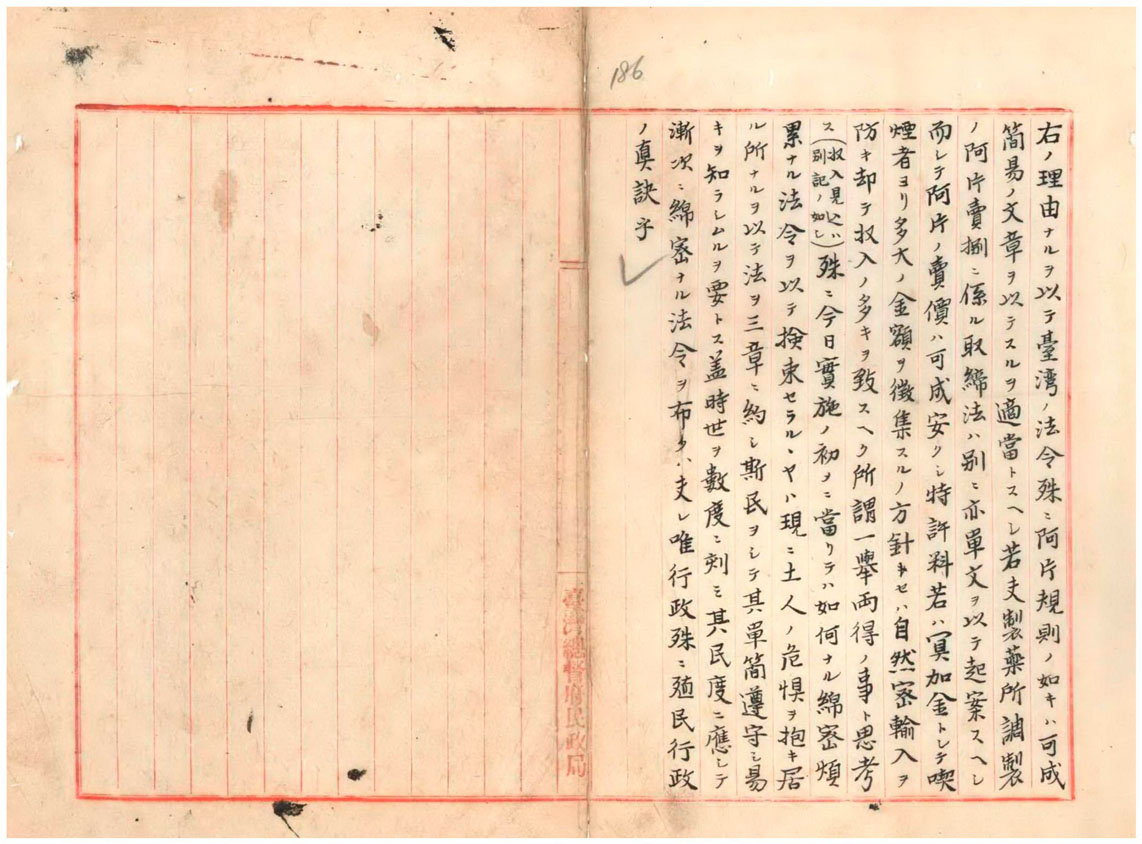 186
右ノ理由ナルヲ以テ臺湾ノ法令殊ニ阿片規則ノ如キハ可成
簡易ノ文章ヲ以テスルヲ適當トスヘシ若夫製藥所調製
ノ阿片賣捌ニ係ル取締法ハ別ニ亦單文ヲ以テ起案スヘシ
而シテ阿片ノ賣價ハ可成安クシ特許料若ハ冥加金トシテ喫
煙者ヨリ多大ノ金額ヲ徴集スルノ方針ナセハ自然密輸入ヲ
防キ却テ収入ノ多キヲ致スヘク所謂一擧両得ノ事ト思考
ス(収入見込ハ別記ノ如シ)殊ニ今日實施ノ初メニ當リテハ如何ナル綿密煩
累ナル法令ヲ以テ検束セラルヽヤハ現ニ土人ノ危惧ヲ抱キ居
ル所ナルヲ以テ法ヲ三章ニ約シ斯民ヲシテ其單簡遵守シ易
キヲ知ラシムルヲ要トス蓋時世ヲ數度ニ刻ミ其民度ニ應シテ
漸次ニ綿密ナル法令ヲ布クハ夫レ唯行政殊ニ殖民行政
ノ眞訣乎
臺灣總督府民政局